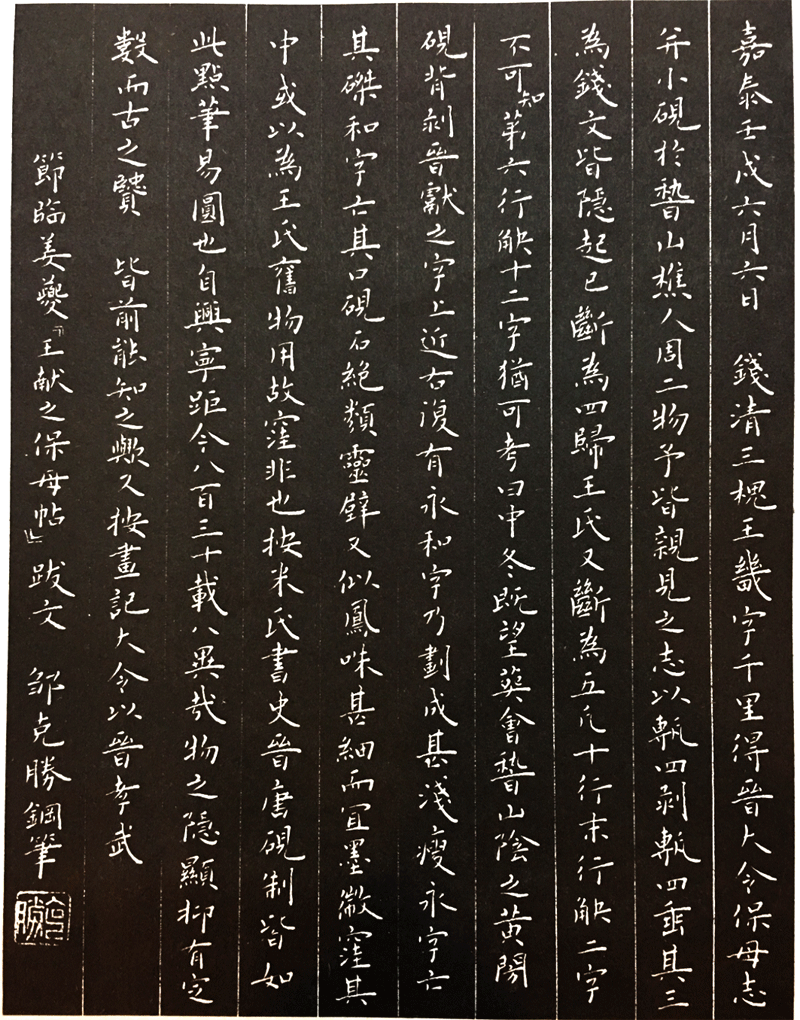 嘉泰壬戌六月六日　錢清三槐王畿字千里得晉大令保母志
并小硯於稽山樵人周二物予皆親見之志以甎四剥甎四垂其三
為錢文皆隱起已斷為四歸王氏又斷為五凡十行末行缺二字
不可知第六行缺十二字猶可考曰中冬既望葬會稽山陰之黃閍
硯背剥晉獻之字上近右復有永和字乃劃成甚淺瘦永字亡
其磔和字亡其口硯石絶類靈壁又似鳳味甚細而宜墨微窪其
中或以為王氏舊物用故窪非也按米氏書史晉唐硯制皆如
此點筆易圓也自興寧距今八百三十載八異哉物之隱顯抑有定
數而古之賢　皆前能知之歟又按畫記大令以晉孝武
節臨姜夔「王献之保母帖」跋文　邹克勝鋼筆